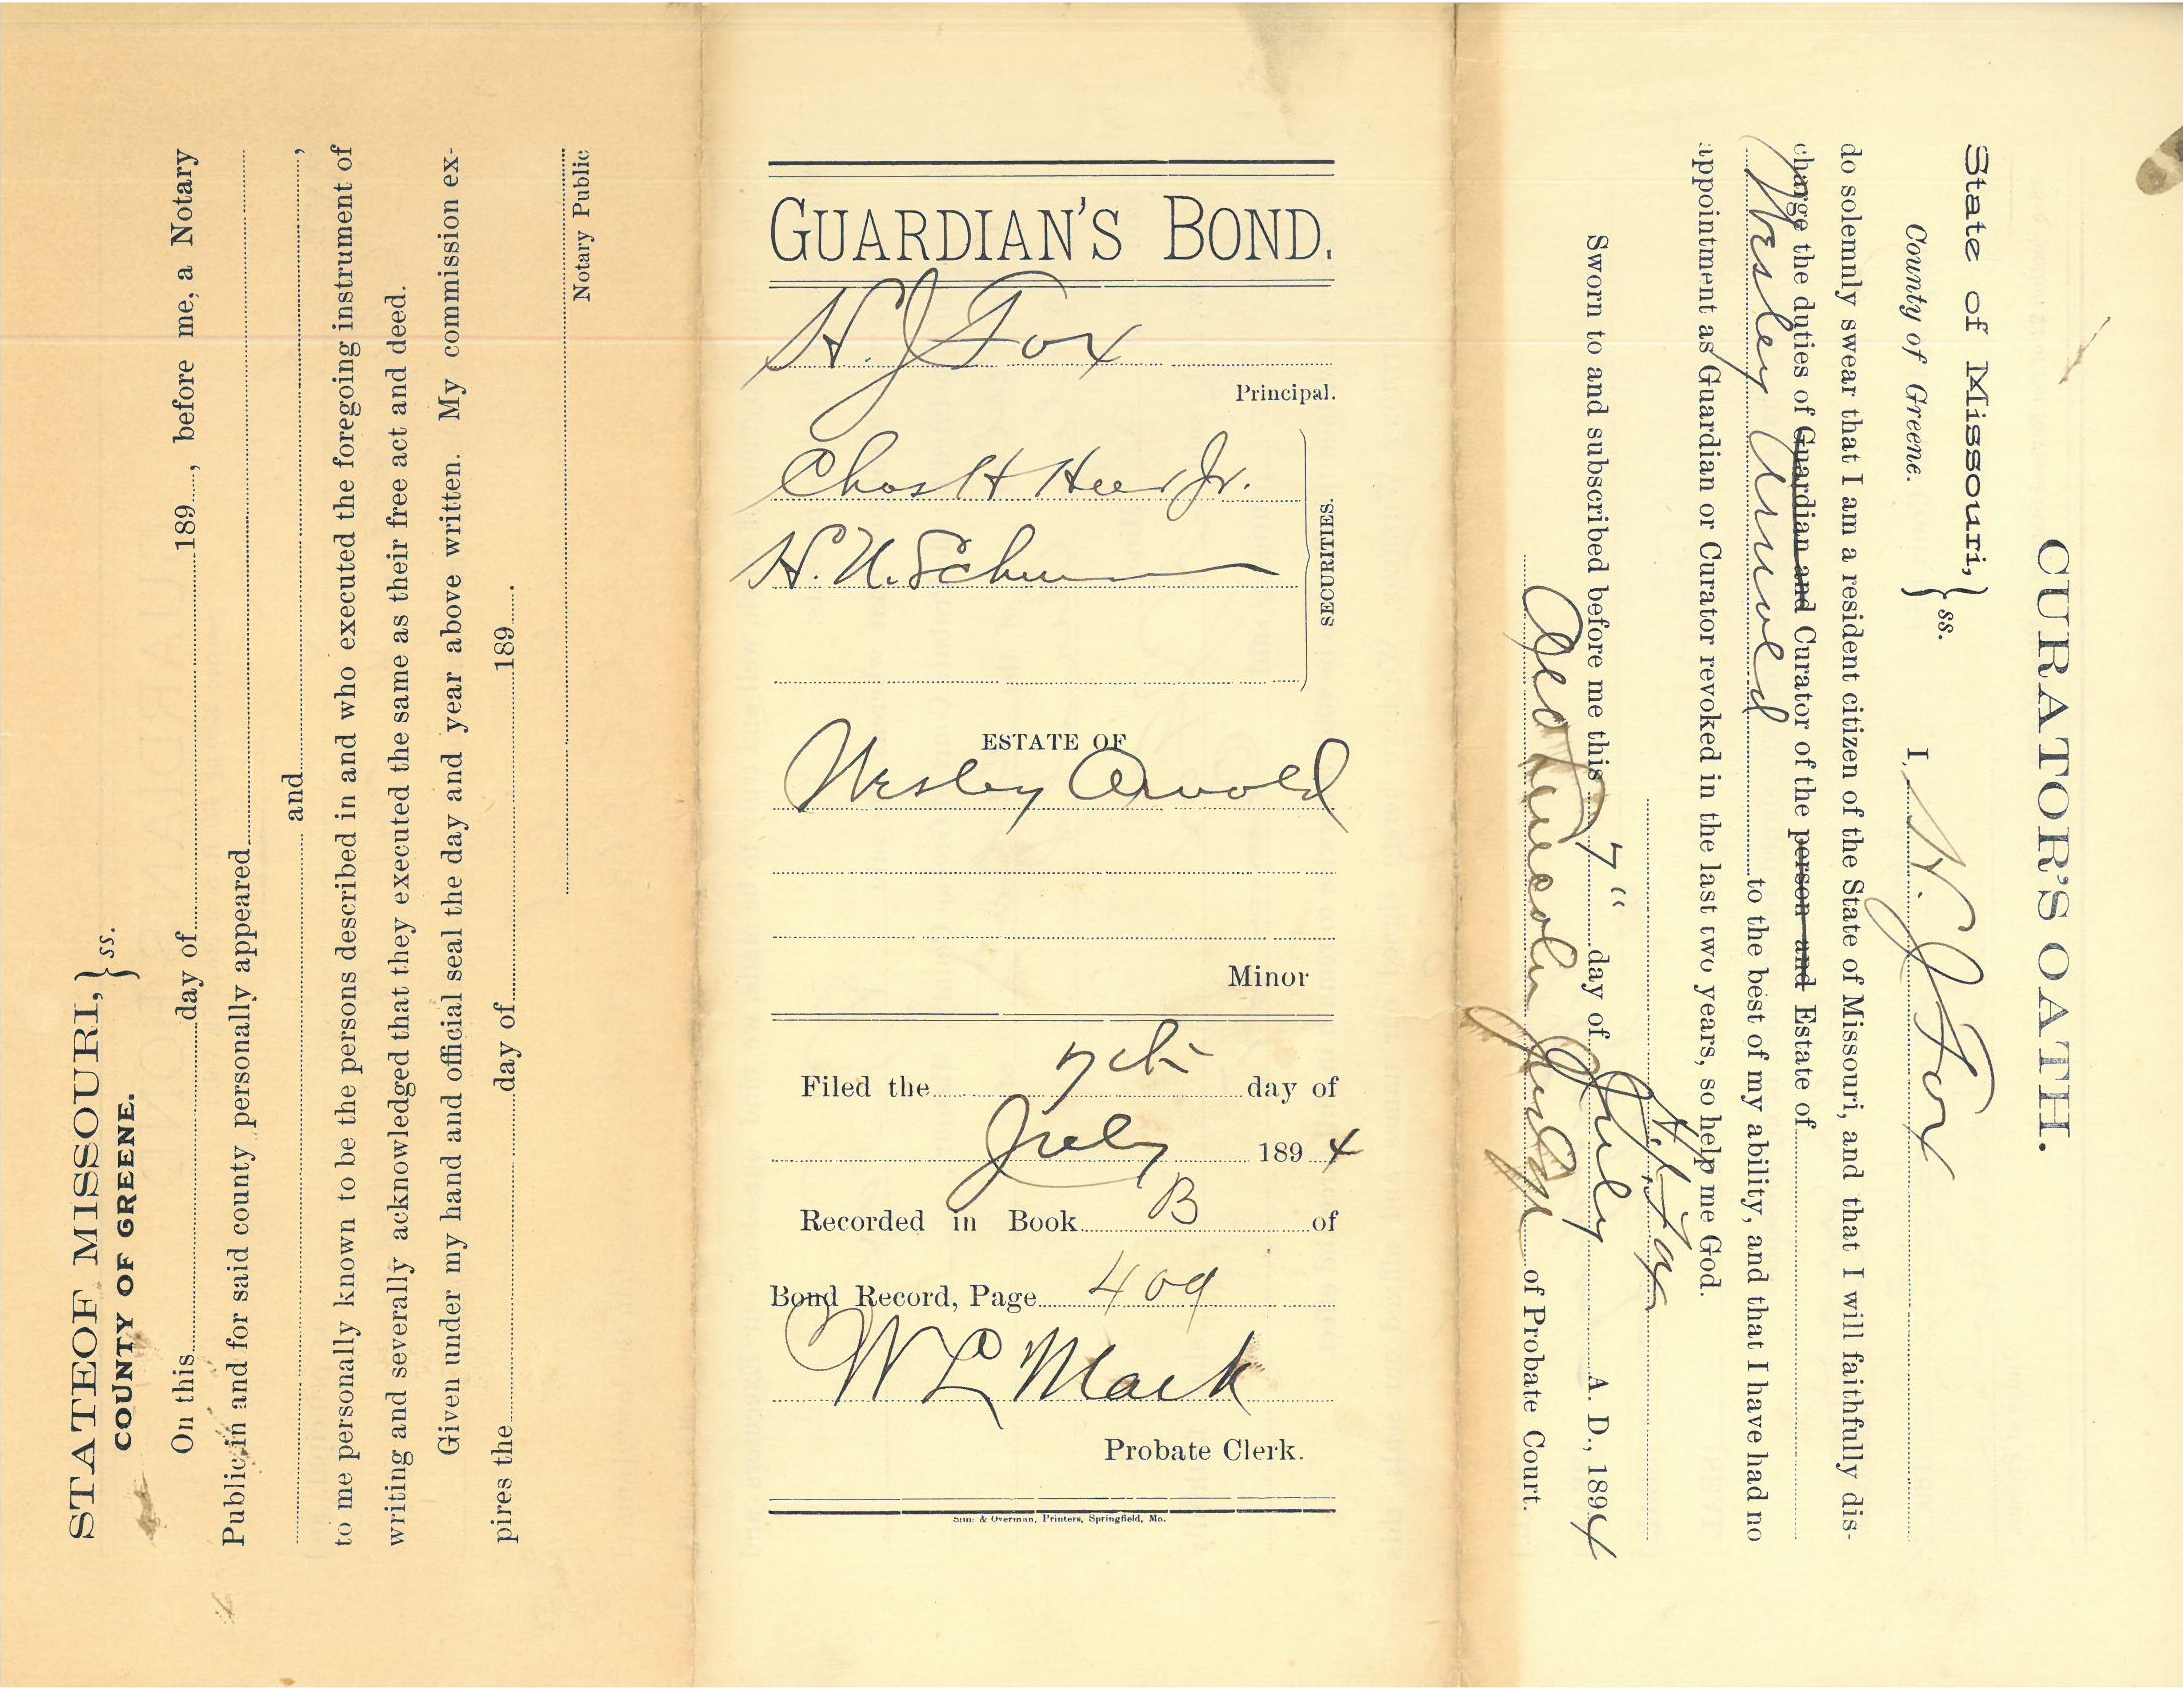 STATE OF MISSOURI, } ss.
COUNTY OF GREENE.
On this day of 189 , before me, a Notary
Public in and for said county personally appeared
and ,
to me personally known to be the persons described in and who executed the foregoing instrument of
writing and severally acknowledged that they executed the same as their free act and deed.
Given under my hand and official seal the day and year above written. My commission ex-
pires the day of 189 .
Notary Public
GUARDIAN'S BOND.
H. J. Fox
Principal.
Chas H Heer Jr.
H. N.
SECURITIES.
ESTATE OF
Wesley Arnold
Minor
Filed the 7th day of
July 1894
Recorded in Book B of
Bond Record, Page 409
W L Mack
Probate Clerk.
& Overman, Printers, Springfield, Mo.
CURATOR'S OATH.
State of Missouri, } ss.
County of Greene. I, H. J. Fox
do solemnly swear that I am a resident citizen of the State of Missouri, and that I will faithfully dis-
charge the duties of Guardian and Curator of the person and Estate of
Wesley Arnold to the best of my ability, and that I have had no
appointment as Guardian or Curator revoked in the last two years, so help me God.
H. J. Fox
Sworn to and subscribed before me this 7" day of July A. D., 1894
of Probate Court.